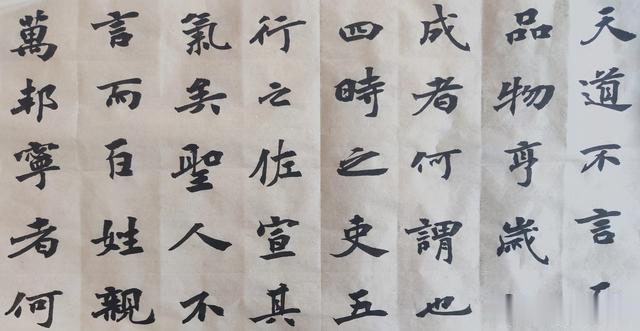 天道不言
品物亨歲
成者何謂也
四時之吏五
行之佐宣其
氣矣聖人不
言而百姓親
萬邦寧者何